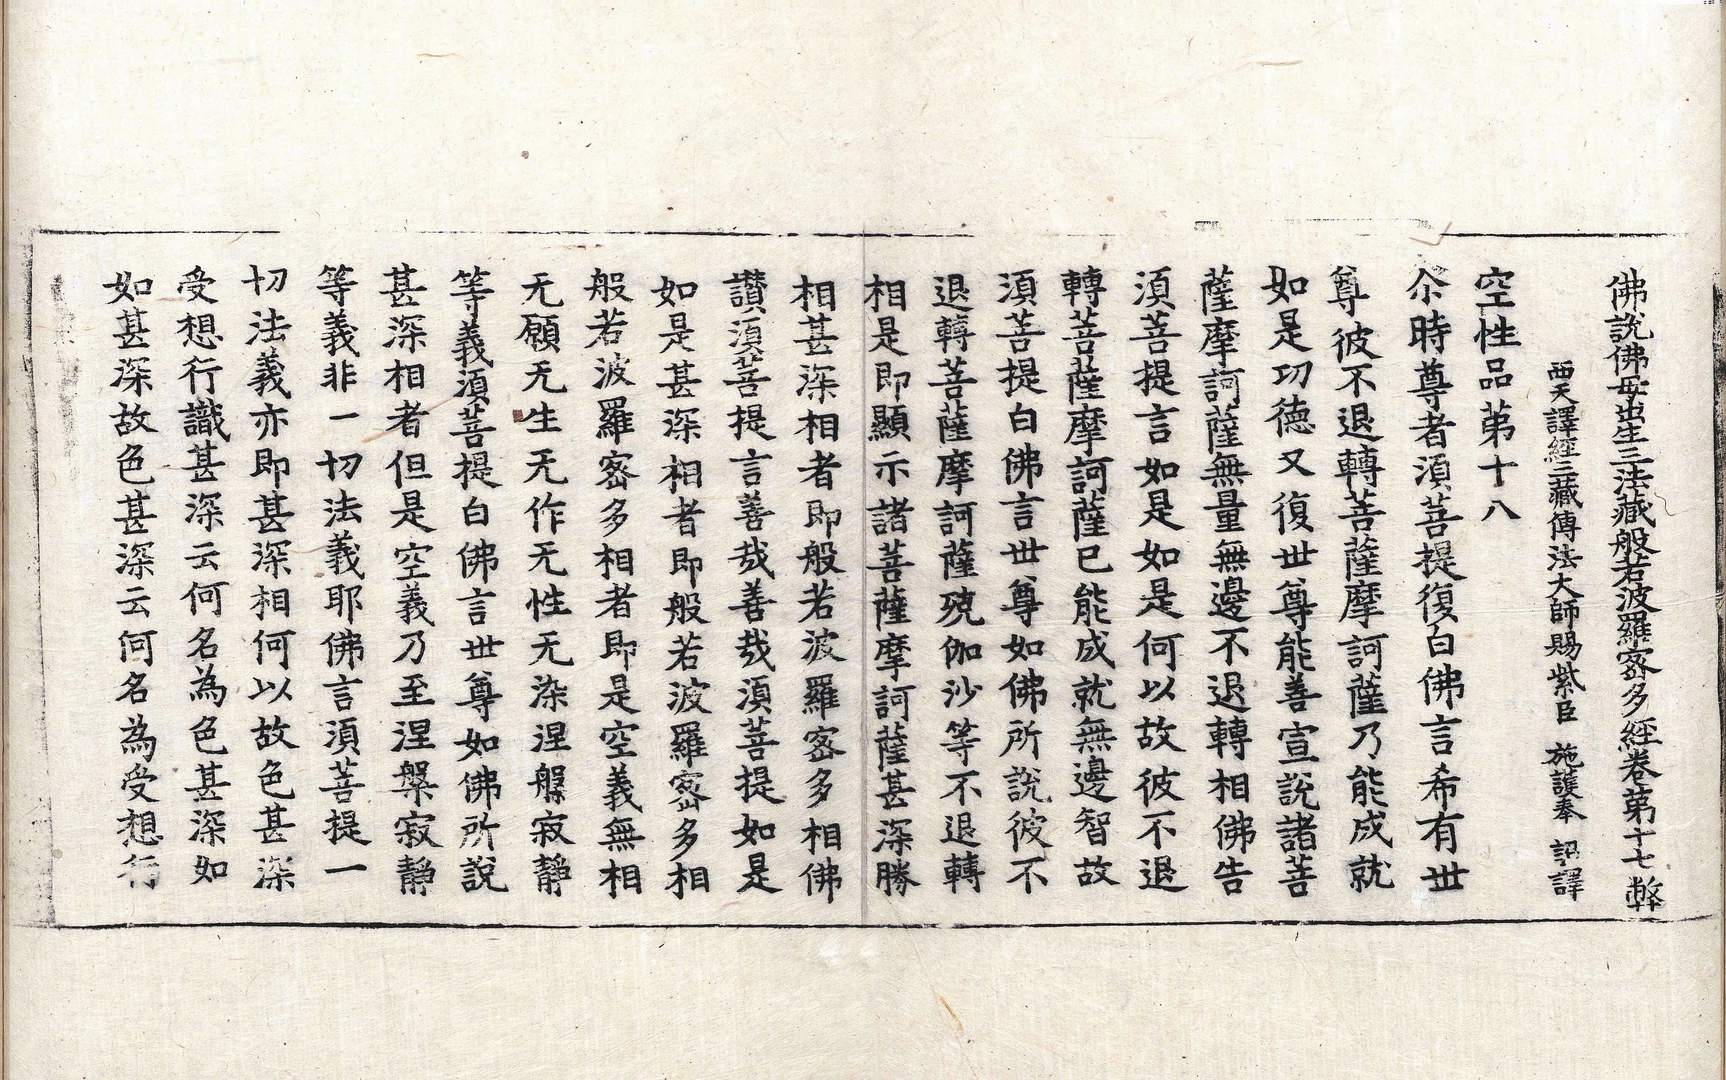 佛說佛母出生三法藏般若波羅蜜多經卷第十七 弊
西天譯經三藏傳法大師賜紫臣 施護奉 詔譯
空性品第十八
尒時尊者湏菩提復白佛言希有世
尊彼不退轉菩薩摩訶薩乃能成就
如是功德又復世尊能善宣說諸菩
薩摩訶薩無量無邊不退轉相佛告
湏菩提言如是如是何以故彼不退
轉菩薩摩訶薩已能成就無邊智故
湏菩提白佛言世尊如佛所說彼不
退轉菩薩摩訶薩殑伽沙等不退轉
相是即顯示諸菩薩摩訶薩甚深勝
相甚深相者即般若波羅蜜多相佛
讃湏菩提言善哉善哉湏菩提如是
如是甚深相者即般若波羅蜜多相
般若波羅蜜多相者即是空義無相
无願无生无作无性无染涅槃寂靜
等義湏菩提白佛言世尊如佛所說
甚深相者但是空義乃至涅槃寂靜
等義非一切法義耶佛言湏菩提一
切法義亦即甚深相何以故色甚深
受想行識甚深云何名為色甚深如
如甚深故色甚深云何名為受想行